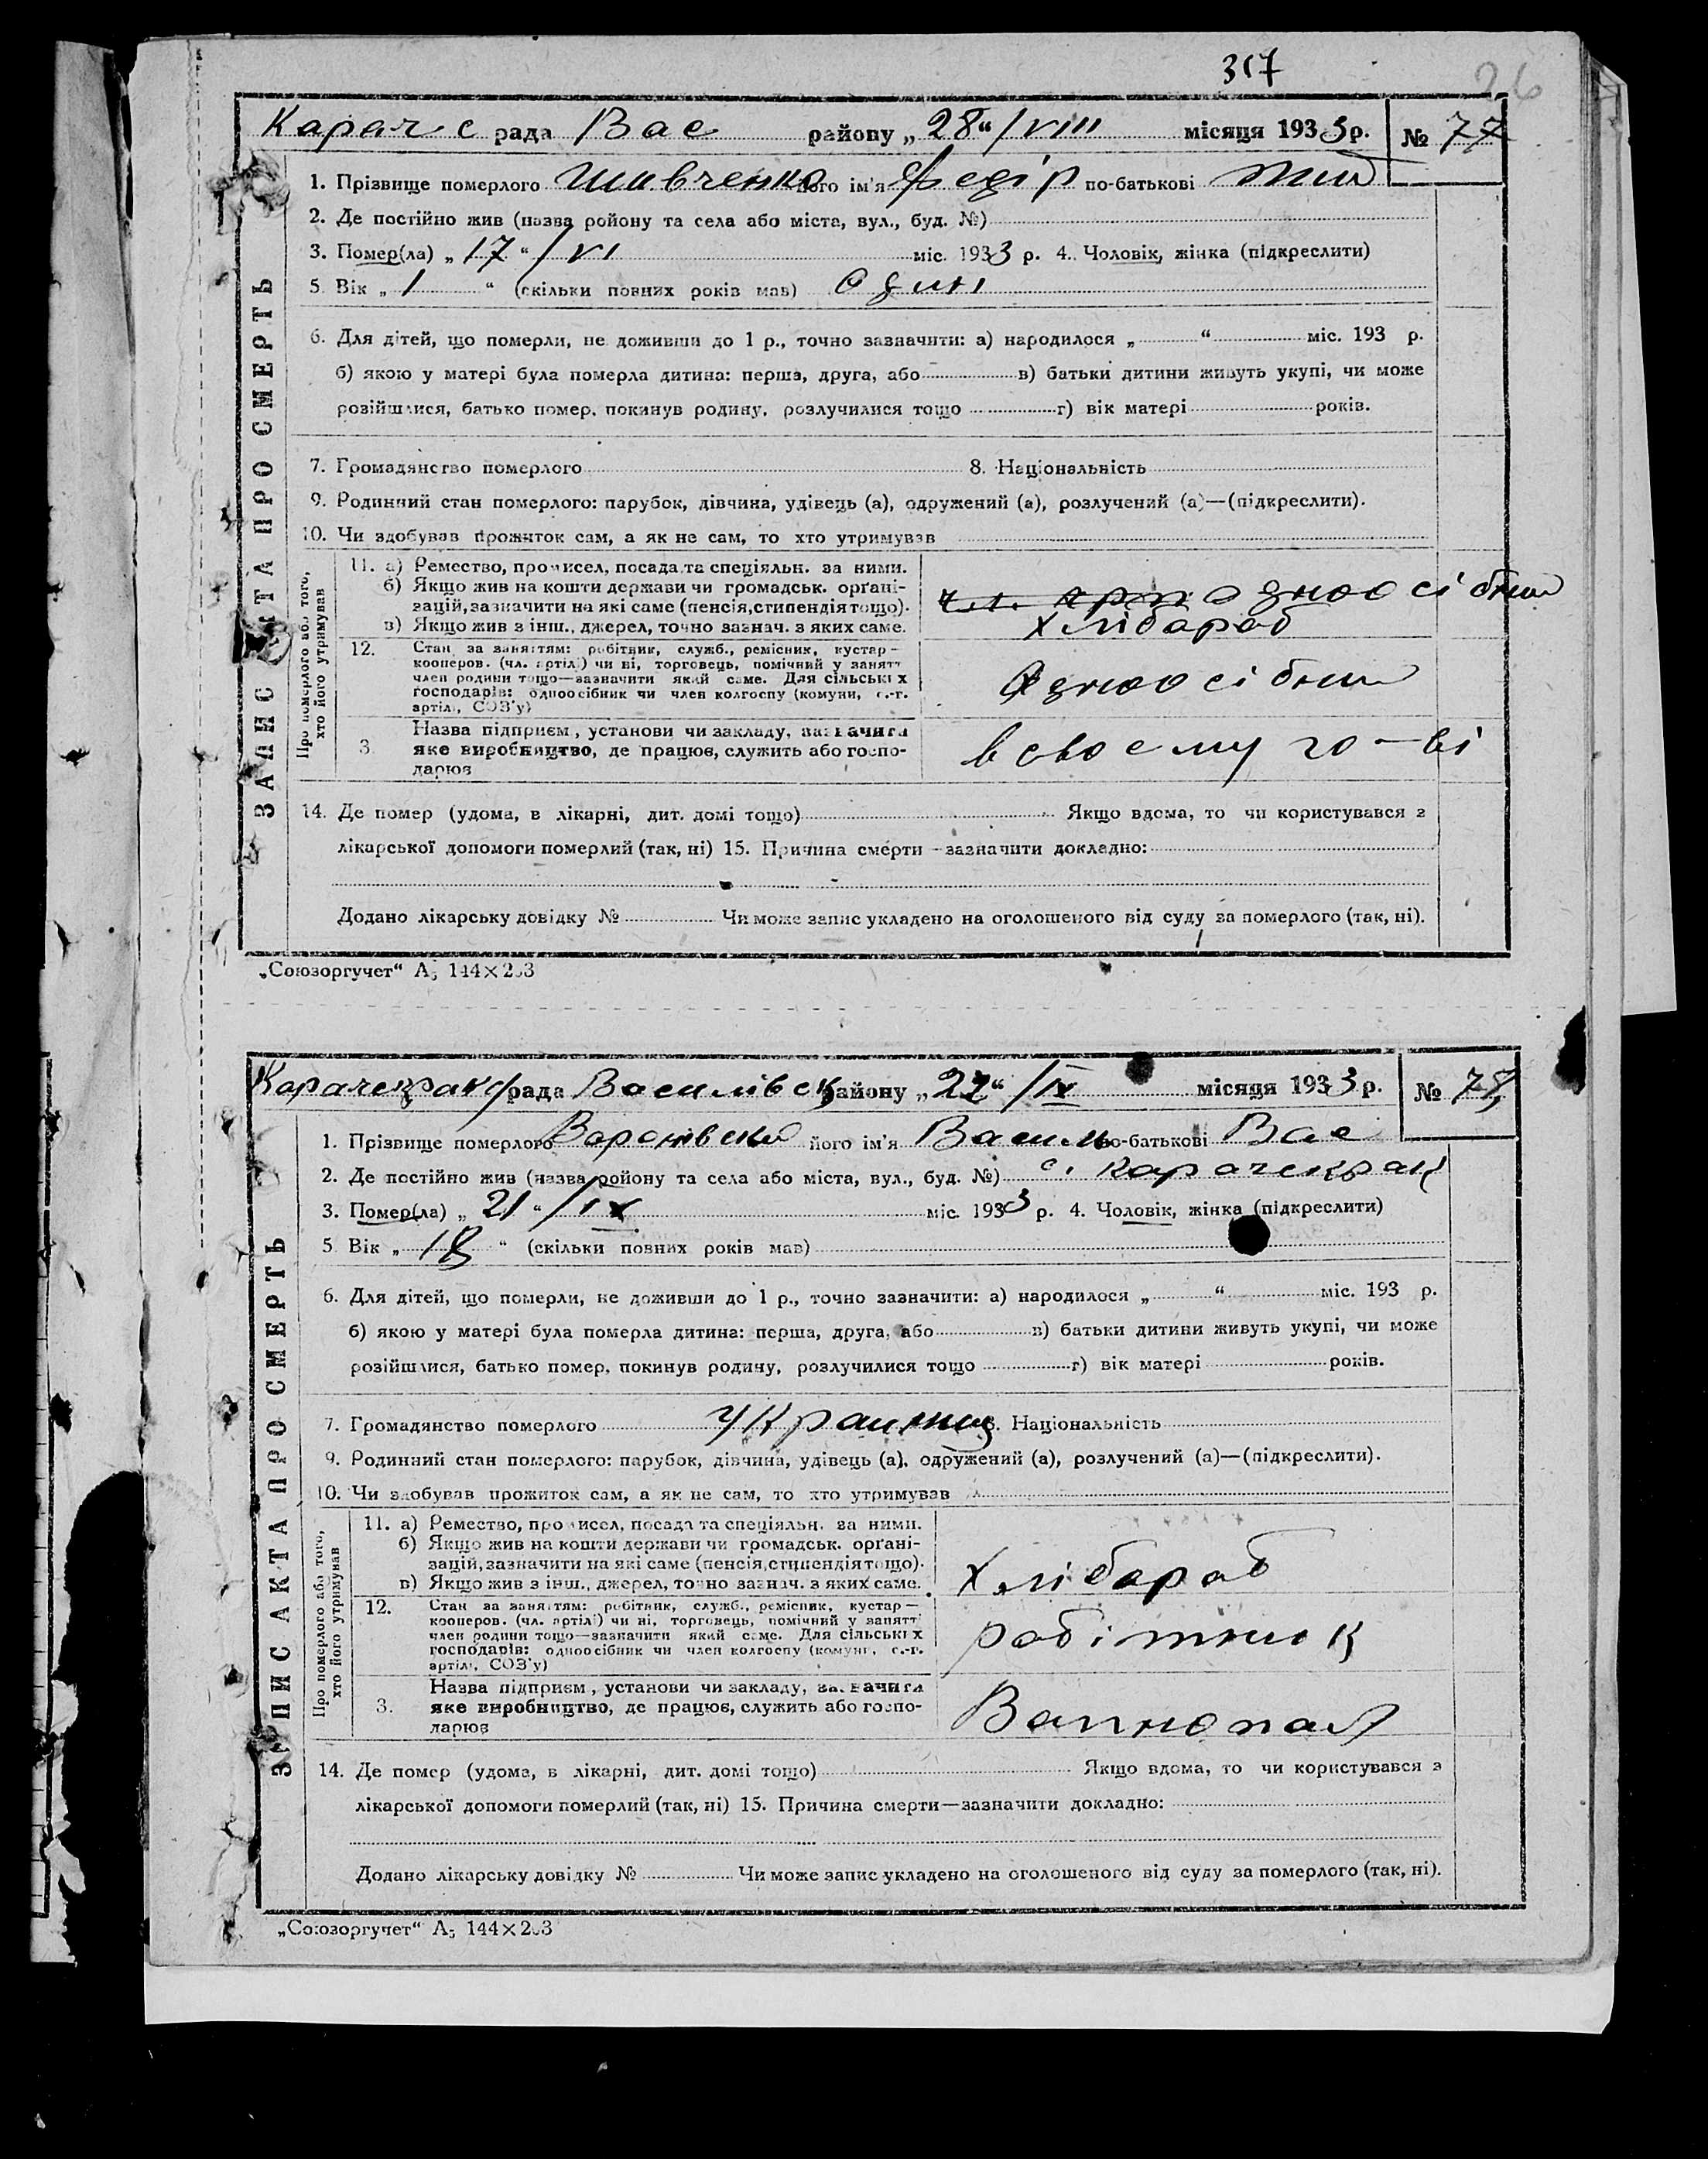 317
26
Карач с рада Вас району „28“/VIII місяця 1933 р. № 77
1. Прізвище померлого Шивченко його ім'я Федір по-батькові Тим
2. Де постійно жив (назва ройону та села або міста, вул., буд. №)
3. Помер(ла) „17“/VI міс. 1933 р. 4. Чоловік, жінка (підкреслити)
5 Вік „1“ (скільки повних років мав) один
6. Для дітей, що померли, не доживши до 1 р., точно зазначити: а) народилося „ “ міс. 193 р.
б) якою у матері була померла дитина: перша, друга, або в) батьки дитини живуть укупі, чи може
розійшлися, батько помер, покинув родину, розлучилися тощо г) вік матері років.
7. Громадянство померлого 8. Національність
9. Родинний стан померлого: парубок, дівчина, удівець (а), одружений (а), розлучений (а)—(підкреслити).
10. Чи здобував прожиток сам, а як не сам, то хто утримував
ЗАПИС АКТА ПРО СМЕРТЬ
Про померлого або того, хто його утримував
11. а) Ремество, промисел, посада та спеціяльн. за ними.
б) Якщо жив на кошти держави чи громадськ. орґані-
зацій, зазначити на які саме (пенсія, стипендія тощо).
в) Якщо жив з інш., джерел, точно зазнач. з яких саме.
одноосібник
хлібороб
12. Стан за заняттям: робітник, служб., ремісник, кустар—
кооперов. (чл. артілі) чи ні, торговець, помічний у занятт
член родини тощо—зазначити який саме. Для сільських
господарів: одноосібник чи член колгоспу (комуни, с.-г.
артілі, СОЗ'у)
Одноосібник
3. Назва підприєм., установи чи закладу, зазначити
яке виробництво, де працює, служить або госпо-
дарює
в своему го-ві
14. Де помер (удома, в лікарні, дит. домі тощо) Якщо вдома, то чи користувався з
лікарської допомоги померлий (так, ні) 15. Причина смерти—зазначити докладно:
Додано лікарську довідку № Чи може запис укладено на оголошеного від суду за померлого (так, ні).
„Союзоргучет“ А5 144×203
Карачекрак рада Василівск району „22“/IX місяця 1933 р. № 78
1. Прізвище померлого його ім'я Василь по-батькові Вас
2. Де постійно жив (назва ройону та села або міста, вул., буд. №) с. Карачекрак
3. Помер(ла) „21“/IX міс. 1933 р. 4. Чоловік, жінка (підкреслити)
5 Вік „18“ (скільки повних років мав)
6. Для дітей, що померли, не доживши до 1 р., точно зазначити: а) народилося „ “ міс. 193 р.
б) якою у матері була померла дитина: перша, друга, або в) батьки дитини живуть укупі, чи може
розійшлися, батько помер, покинув родину, розлучилися тощо г) вік матері років.
7. Громадянство померлого Украинец 8. Національність
9. Родинний стан померлого: парубок, дівчина, удівець (а), одружений (а), розлучений (а)—(підкреслити).
10. Чи здобував прожиток сам, а як не сам, то хто утримував
ЗАПИС АКТА ПРО СМЕРТЬ
Про померлого або того, хто його утримував
11. а) Ремество, промисел, посада та спеціяльн. за ними.
б) Якщо жив на кошти держави чи громадськ. орґані-
зацій, зазначити на які саме (пенсія, стипендія тощо).
в) Якщо жив з інш., джерел, точно зазнач. з яких саме.
Хлібороб
12. Стан за заняттям: робітник, служб., ремісник, кустар—
кооперов. (чл. артілі) чи ні, торговець, помічний у занятт
член родини тощо—зазначити який саме. Для сільських
господарів: одноосібник чи член колгоспу (комуни, с.-г.
артілі, СОЗ'у)
робітник
3. Назва підприєм., установи чи закладу, зазначити
яке виробництво, де працює, служить або госпо-
дарює
Вапнопал
14. Де помер (удома, в лікарні, дит. домі тощо) Якщо вдома, то чи користувався з
лікарської допомоги померлий (так, ні) 15. Причина смерти—зазначити докладно:
Додано лікарську довідку № Чи може запис укладено на оголошеного від суду за померлого (так, ні).
„Союзоргучет“ А5 144×203